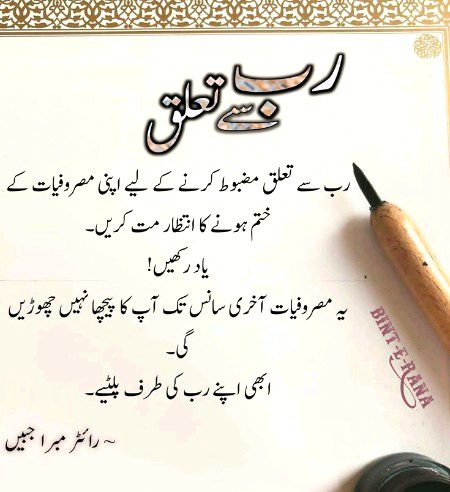 رب سے تعلق
رب سے تعلق مضبوط کرنے کے لیے اپنی مصروفیات کے
ختم ہونے کا انتظار مت کریں۔
یاد رکھیں!
یہ مصروفیات آخری سانس تک آپ کا پیچھا نہیں چھوڑیں
گی۔
ابھی اپنے رب کی طرف پلٹیے۔
~ رائٹر مبرا جبیں
BINT-E-RANA